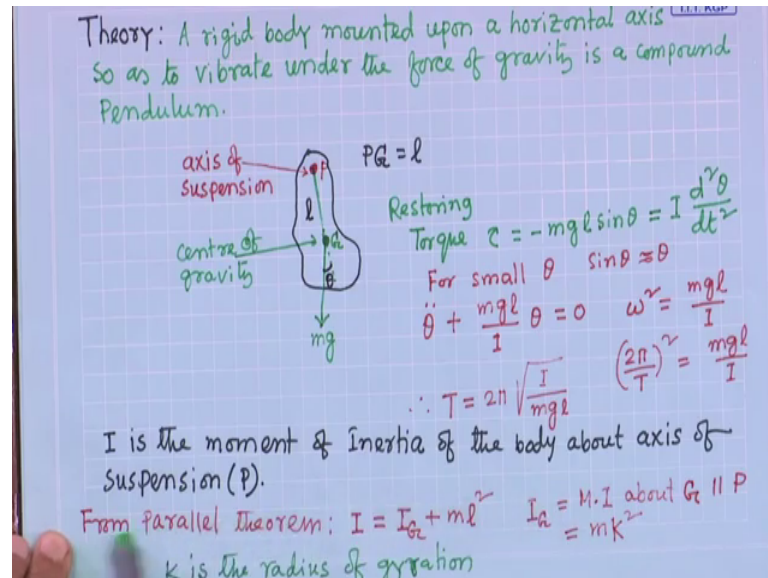 I.I.T. KGP
Theory: A rigid body mounted upon a horizontal axis
so as to vibrate under the force of gravity is a compound
Pendulum.
axis of
suspension
P
PG = l
l
Restoring
Torque τ = -mgl sinθ = I d²θ/dt²
centre of
gravity
G
θ
mg
For small θ sinθ ≈ θ
θ̈ + mgl/I θ = 0 ω² = mgl/I
∴ T = 2π √(I/mgl) (2π/T)² = mgl/I
I is the moment of Inertia of the body about axis of
suspension (P).
From parallel theorem: I = I_G + ml² I_G = M.I about G || P
= mK²
K is the radius of gyration